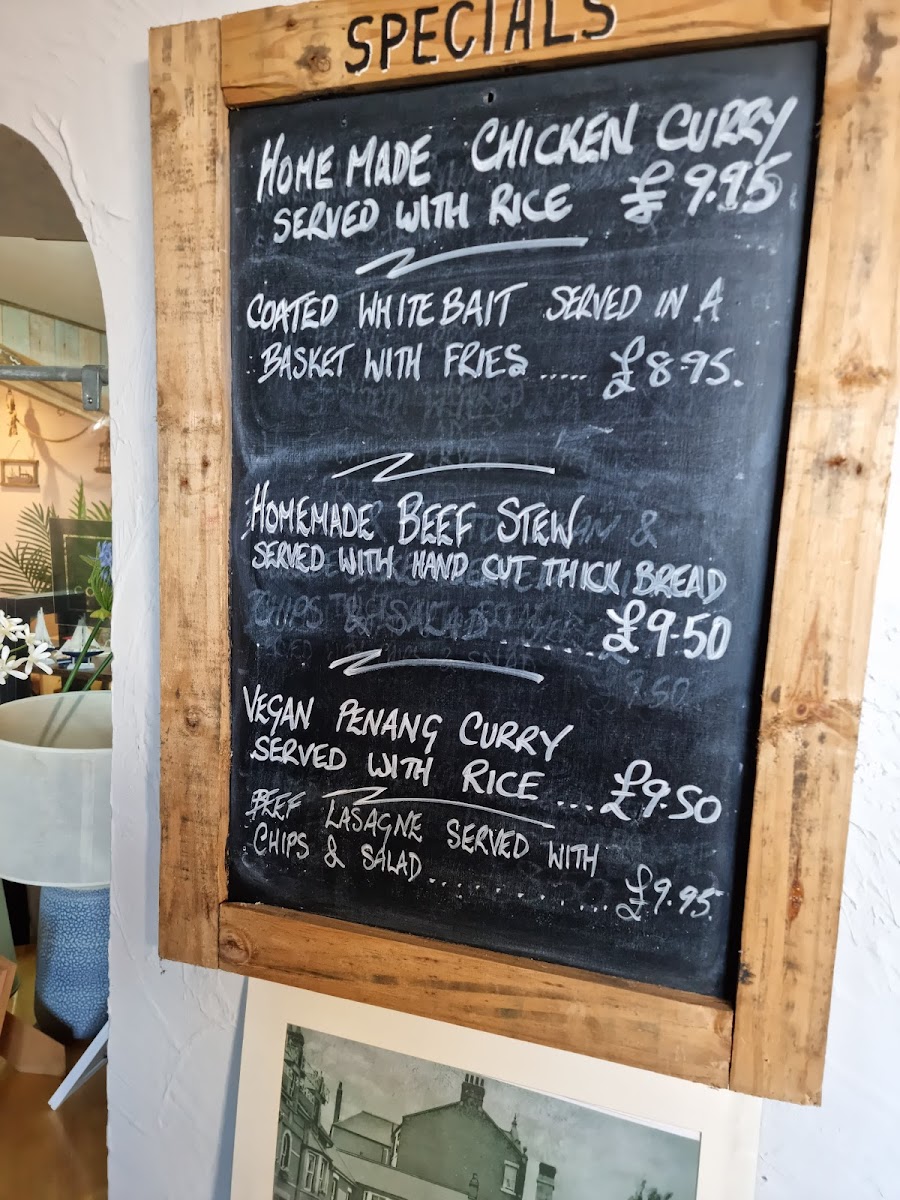 SPECIALS
HOME MADE CHICKEN CURRY
SERVED WITH RICE £9.95
COATED WHITEBAIT SERVED IN A
BASKET WITH FRIES ..... £8.95.
HOMEMADE BEEF STEW
SERVED WITH HAND CUT THICK BREAD
CHIPS & SALAD
........£9.50
£9.50
VEGAN PENANG CURRY
SERVED WITH RICE ...£9.50
BEEF LASAGNE SERVED WITH
CHIPS & SALAD ............ £9.95.